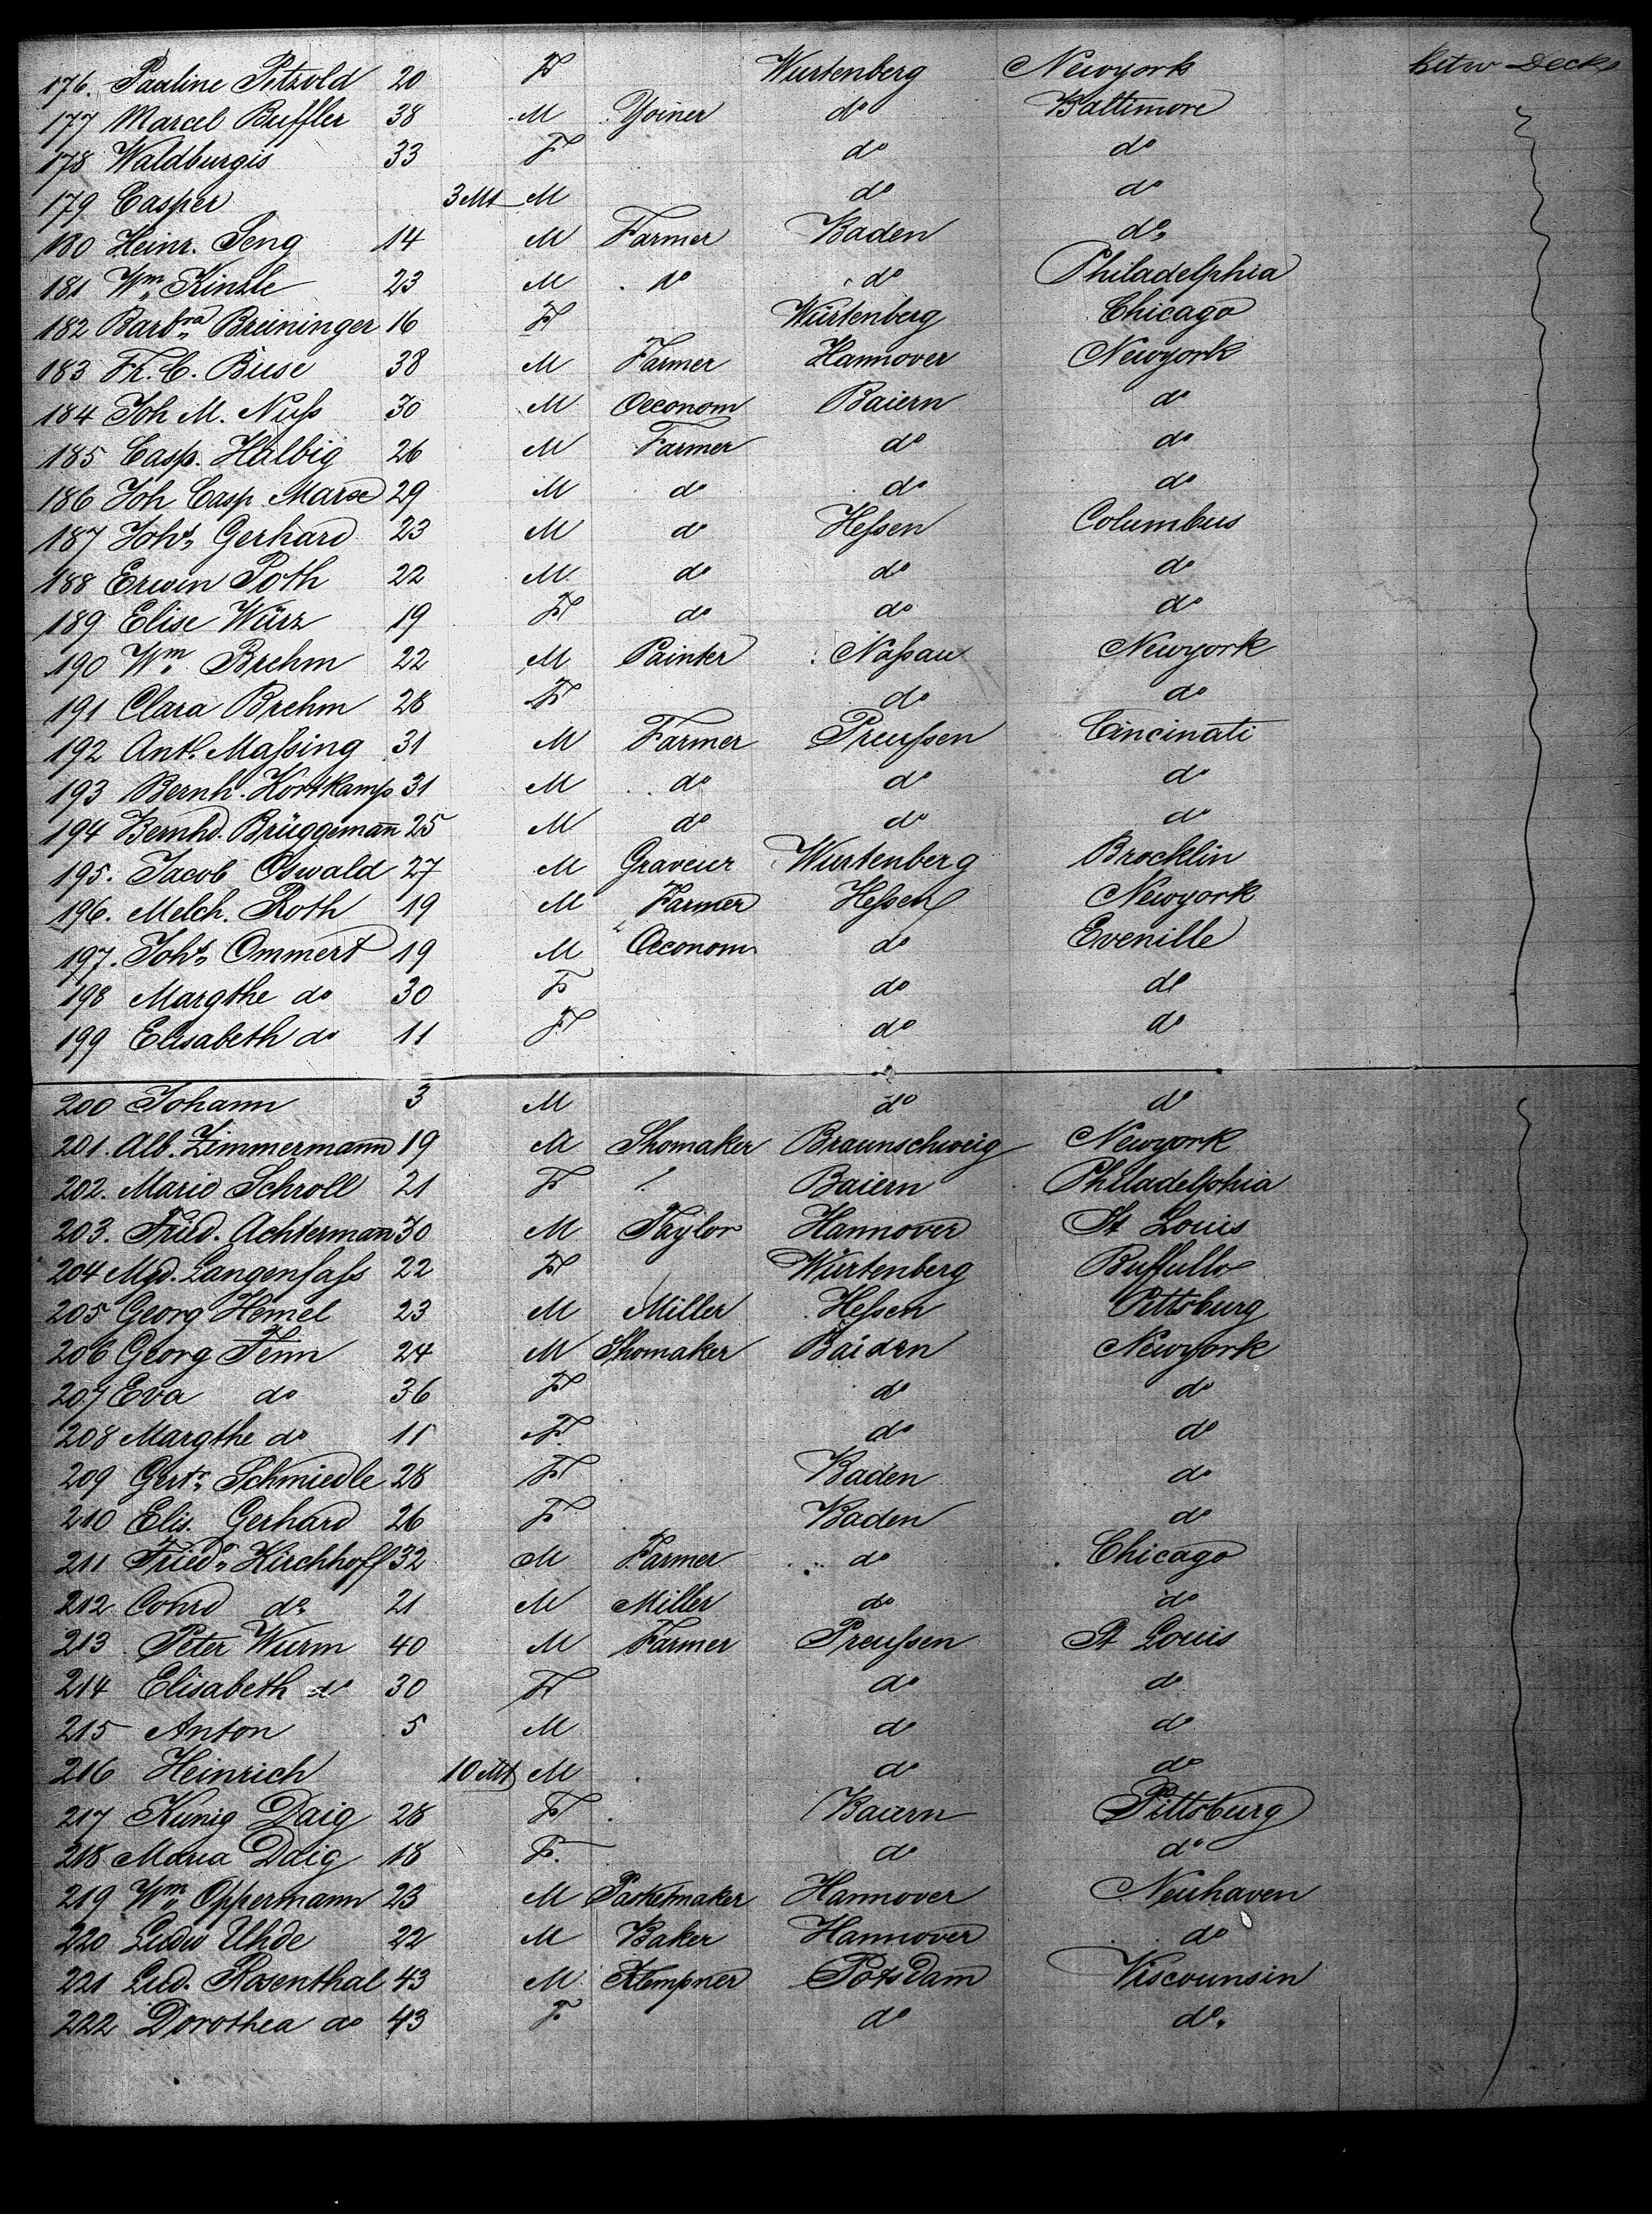 176. Pauline Petzold 20 F Wurtenberg Newyork betw Decks
177 Marcel Buffler 38 M Yoiner do Baltimore
178 Waldburgis 33 F do do
179 Casper 3 Mt M do do
180 Heinr. Seng 14 M Farmer Baden do
181 Wm. Kinzle 23 M do do Philadelphia
182 Barbra Breininger 16 F Würtenberg Chicago
183 Fr. C. Buse 38 M Farmer Hannover Newyork
184 Joh M. Nuſs 30 M Oeconom Baiern do
185 Casp. Halbig 26 M Farmer do do
186 Joh Casp Marx 29 M do do do
187 Johs. Gerhard 23 M do Heſsen Columbus
188 Erwin Poth 22 M do do do
189 Elise Würz 19 F do do do
190 Wm. Brehm 22 M Painter Naſsau Newyork
191 Clara Brehm 28 F do do
192 Ant. Maſsing 31 M Farmer Preuſsen Cincinati
193 Bernh. Kortkamp 31 M do do do
194 Bernhd. Brüggeman̄ 25 M do do do
195. Jacob Oswald 27 M Graveur Wurtenberg Brocklin
196. Melch. Roth 19 M Farmer Heſsen Newyork
197. Johs. Ommert 19 M Oeconom do Evenille
198 Margthe do 30 F do do
199 Elisabeth do 11 F do do
200 Johann 3 M do do
201. Alb. Zimmermann 19 M Shomaker Braunschweig Newyork
202. Marie Schroll 21 F Baiern Philadelphia
203. Fried. Achterman̄ 30 M Taylor Hannover St Louis
204 Mgd. Langenfaſs 22 F Würtenberg Buffullo
205 Georg Hemel 23 M Miller Heſsen Pittsburg
206 Georg Fenn 24 M Shomaker Baiern Newyork
207 Eva do 36 F do do
208 Margthe do 11 F do do
209 Gertr. Schmiedle 28 F Baden do
210 Elis. Gerhard 26 F Baden do
211 Friedr. Kirchhoff 32 M Farmer do Chicago
212 Conrd do 21 M Miller do do
213 Peter Wurm 40 M Farmer Preuſsen St Louis
214 Elisabeth do 30 F do do
215 Anton 5 M do do
216 Heinrich 10 Mt M do do
217 Kunig Daig 28 F Baiern Pittsburg
218 Maria Daig 18 F. do do
219 Wm. Oppermann 23 M Hannover Neuhaven
220 Ludw Uhde 22 M Baker Hannover do
221 Lud. Rosenthal 43 M Klempner Potsdam Viscounsin
222 Dorothea do 43 F do do.